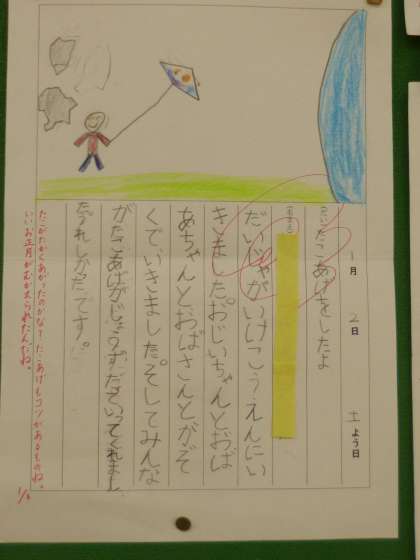 1月2日土よう日
(だい)たこあげをしたよ
(なまえ)
だいじゃがいけこうえんにい
きました。おじいちゃんとおば
あちゃんとおばさんとかぞ
くでいきました。そしてみんな
がたこあげがじょうずだといってくれまし
た。うれしかったです。
たこがたかくあがったのかな?たこあげもコツがあるものね。
いいお正月がむかえられたんだね。
1/8